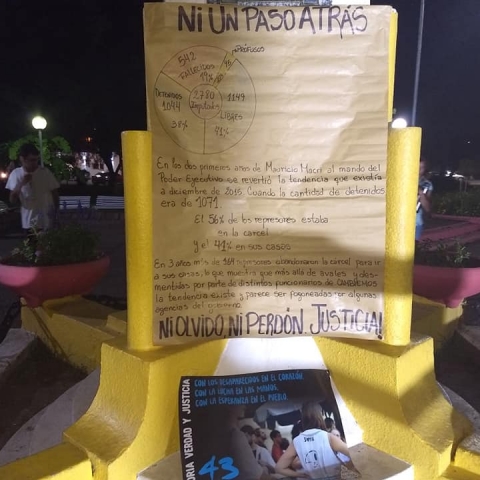 NI UN PASO ATRÁS
PRÓFUGOS
542
FALLECIDOS
19%
2780
Imputados
DETENIDOS
1044
38%
1149
LIBRES
41%
En los dos primeros años de Mauricio Macri al mando del
Poder Ejecutivo se revertió la tendencia que existía
a diciembre de 2015, Cuando la cantidad de detenidos
era de 1071.
El 56% de los represores estaba
en la carcel
y el 41% en sus casas
En 3 años más de 164 represores abandonaron la carcel para ir
a sus casas, lo que muestra que más allá de avales y des-
mentidas por parte de distintos funcionarios de
la tendencia existe y parece ser fogoneada por algunas
agencias del gobierno
NI OLVIDO NI PERDÓN. JUSTICIA!
CON LOS DESAPARECIDOS EN EL CORAZÓN
CON LA LUCHA EN LAS MANOS.
CON LA ESPERANZA EN EL PUEBLO.
ORIA VERDAD Y JUSTICIA
43